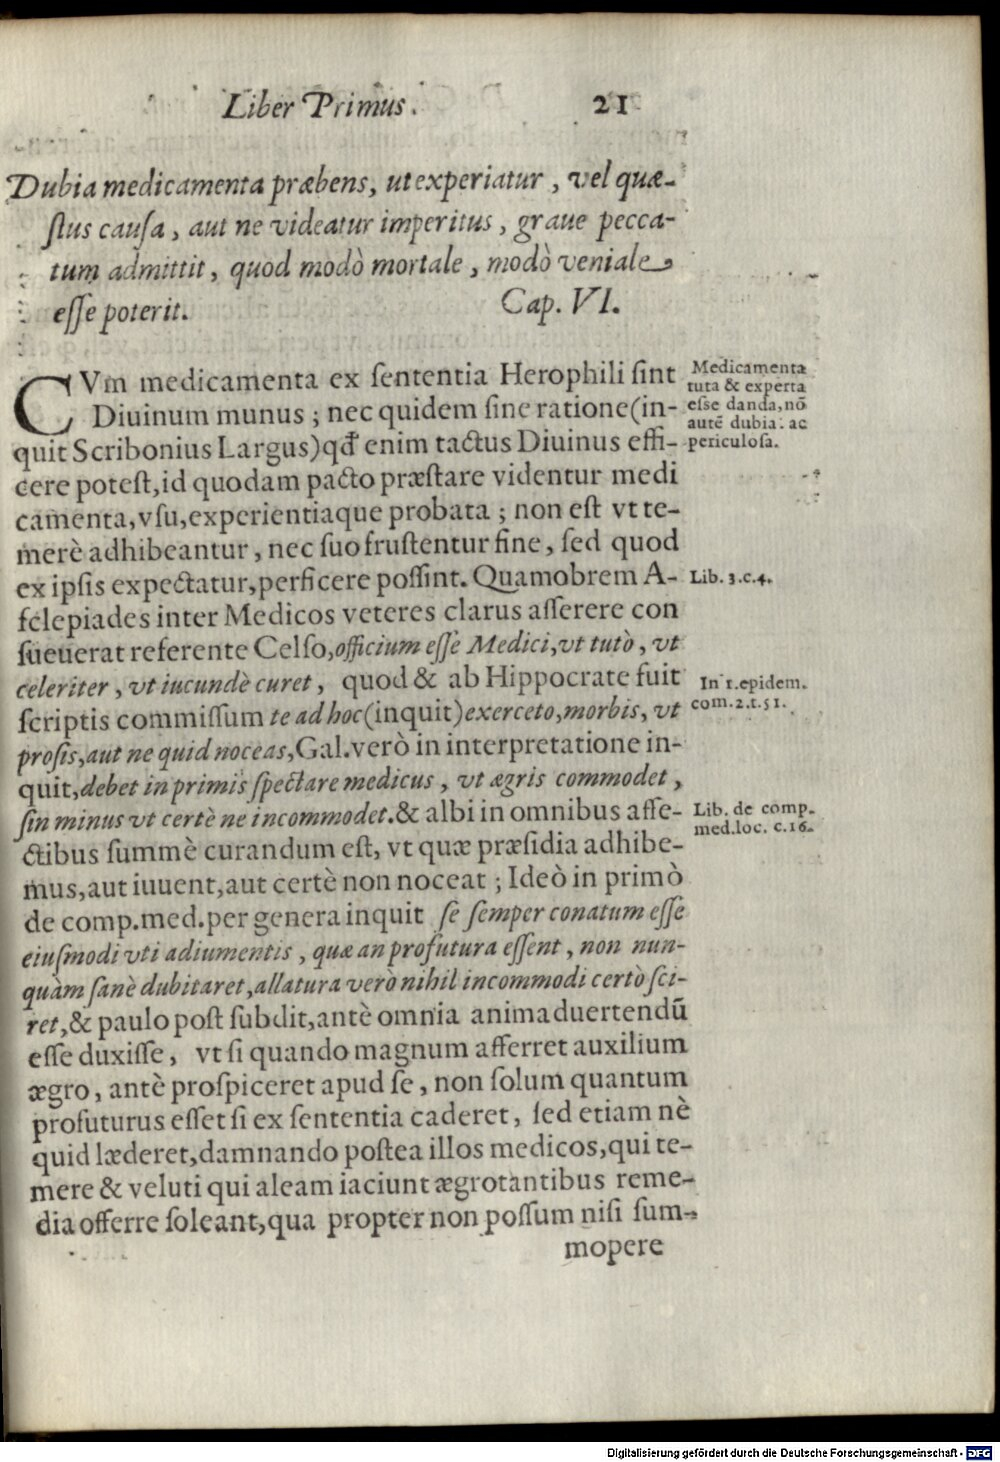 Liber Primus. 21
Dubia medicamenta præbens, ut experiatur, vel quæ-
ſtus cauſa, aut ne videatur imperitus, graue pecca-
tum admittit, quod modò mortale, modò veniale
eſſe poterit. Cap. VI.
CVm medicamenta ex ſententia Herophili ſint
Diuinum munus; nec quidem ſine ratione (in-
quit Scribonius Largus) qđ enim tactus Diuinus effi-
cere poteſt, id quodam pacto præſtare videntur medi
camenta, vſu, experientiaque probata; non eſt vt te-
merè adhibeantur, nec ſuo fruſtentur fine, ſed quod
ex ipſis expectatur, perficere poſſint. Quamobrem A-
ſclepiades inter Medicos veteres clarus aſſerere con
ſueuerat referente Celſo, officium eſſe Medici, vt tutò, vt
celeriter, vt iucundè curet, quod & ab Hippocrate fuit
ſcriptis commiſſum te ad hoc (inquit) exerceto, morbis, vt
proſis, aut ne quid noceas, Gal. verò in interpretatione in-
quit, debet in primis ſpectare medicus, vt ægris commodet,
ſin minus vt certè ne incommodet. & albi in omnibus affe-
ctibus ſummè curandum eſt, vt quæ præſidia adhibe-
mus, aut iuuent, aut certè non noceat; Ideò in primò
de comp. med. per genera inquit ſe ſemper conatum eſſe
eiuſmodi vti adiumentis, quæ an profutura eſſent, non nun-
quàm ſanè dubitaret, allatura verò nihil incommodi certò ſci-
ret, & paulo poſt ſubdit, antè omnia animaduertendū
eſſe duxiſſe, vt ſi quando magnum afferret auxilium
ægro, antè proſpiceret apud ſe, non ſolum quantum
profuturus eſſet ſi ex ſententia caderet, ſed etiam nè
quid læderet, damnando poſtea illos medicos, qui te-
mere & veluti qui aleam iaciunt ægrotantibus reme-
dia offerre ſoleant, qua propter non poſſum niſi ſum-
mopere
Medicamenta
tuta & experta
eſſe danda, nō
autē dubia. ac
periculoſa.
Lib. 3. c. 4.
In 1. epidem.
com. 2. t. 51.
Lib. de comp.
med. loc. c. 16.
Digitalisierung gefördert durch die Deutsche Forschungsgemeinschaft - DFG